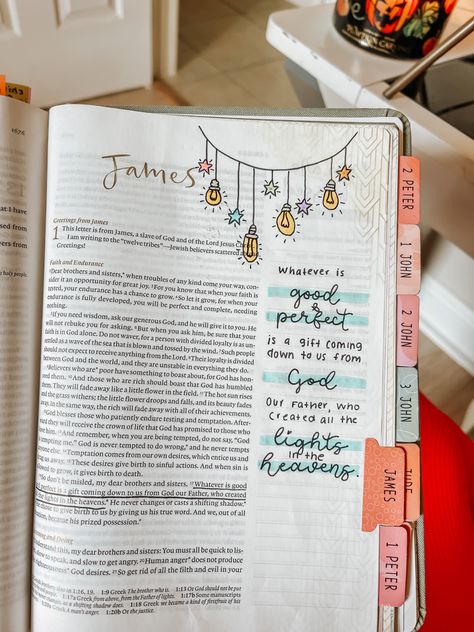 1676
James
Greetings from James
1 This letter is from James, a slave of God and of the Lord Jesus C
I am writing to the "twelve tribes"—Jewish believers scattered
Greetings!
Faith and Endurance
2Dear brothers and sisters,* when troubles of any kind come your way, con-
sider it an opportunity for great joy. 3For you know that when your faith is
tested, your endurance has a chance to grow. 4So let it grow, for when your
endurance is fully developed, you will be perfect and complete, needing
nothing.
5If you need wisdom, ask our generous God, and he will give it to you. He
will not rebuke you for asking. 6But when you ask him, be sure that your
faith is in God alone. Do not waver, for a person with divided loyalty is as un-
settled as a wave of the sea that is blown and tossed by the wind. 7Such people
should not expect to receive anything from the Lord. 8Their loyalty is divided
between God and the world, and they are unstable in everything they do.
9Believers who are* poor have something to boast about, for God has hon-
ored them. 10And those who are rich should boast that God has humbled
them. They will fade away like a little flower in the field. 11The hot sun rises
and the grass withers; the little flower droops and falls, and its beauty fades
away. In the same way, the rich will fade away with all of their achievements.
12God blesses those who patiently endure testing and temptation. After-
ward they will receive the crown of life that God has promised to those who
love him. 13And remember, when you are being tempted, do not say, "God
is tempting me." God is never tempted to do wrong,* and he never tempts
anyone else. 14Temptation comes from our own desires, which entice us and
drag us away. 15These desires give birth to sinful actions. And when sin is
allowed to grow, it gives birth to death.
16So don't be misled, my dear brothers and sisters. 17Whatever is good
and perfect is a gift coming down to us from God our Father, who created
all the lights in the heavens.* He never changes or casts a shifting shadow.*
18He chose to give birth to us by giving us his true word. And we, out of all
creation, became his prized possession.*
Listening and Doing
19Understand this, my dear brothers and sisters: You must all be quick to lis-
ten, slow to speak, and slow to get angry. 20Human anger* does not produce
the righteousness* God desires. 21So get rid of all the filth and evil in your
1:9 Greek The brother who is. 1:13 Or God should not be
1:17a Greek from above, from the Father of lights. 1:17b Some manuscripts
1:18 Greek we became a kind of firstfruit of his
1:20b Or the justice.
Whatever is
good
&
perfect
is a gift coming
down to us from
God
our Father, who
created all the
lights
in the
heavens.
2 PETER
1 JOHN
2 JOHN
3 JOHN
JUDE
JAMES
1 PETER